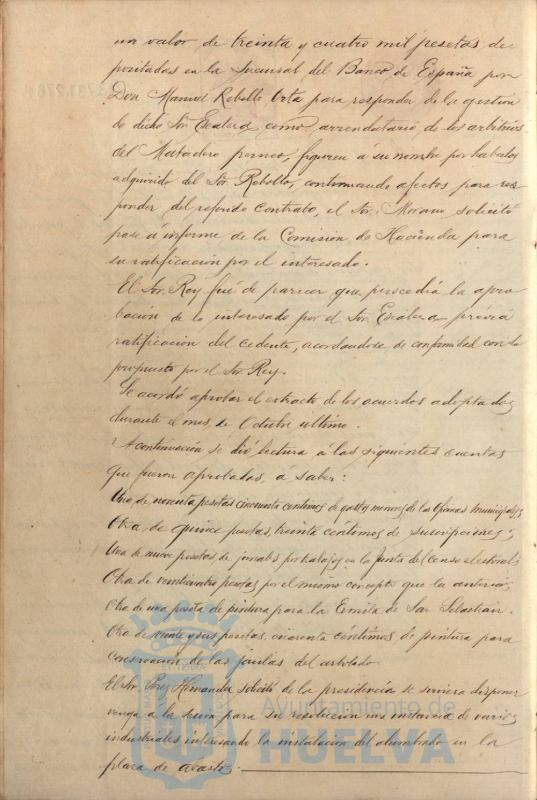 un valor de treinta y cuatro mil pesetas de
positadas en la Sucursal del Banco de España por
Don Manuel Rebollo Orta para responder de la gestion
de dicho Sor. Escalera como arrendatario de los arbitrios
del Matadero perneo, figuren á su nombre por haberlos
adquirido del Sor. Rebollo, continuando afectos para res
ponder del referido contrato, el Sor. Morano solicitó
pase á informe de la Comision de Hacienda para
su ratificacion por el interesado.
El Sor. Rey fué de parecer que procedia la apro
bacion de lo interesado por el Sor. Escalera previa
ratificacion del cedente, acordandose de conformidad con lo
propuesto por el Sor. Rey.
Se acordó aprobar el extracto de los acuerdos adoptados
durante el mes de Octubre último.
A continuación se dió lectura á las siguientes cuentas
que fueron aprobadas, á saber:
Una de noventa pesetas cincuenta centimos de gastos menores de las Oficinas municipales;
Otra de quince pesetas, treinta céntimos de suscripciones;
Una de nueve pesetas de jornales por trabajos en la Junta del censo electoral;
Otra de veinticuatro pesetas por el mismo concepto que la anterior;
Otra de una peseta de pintura para la Ermita de San Sebastian.
Otra de veinte y seis pesetas, cincuenta céntimos de pintura para
conservacion de las jaulas del arbolado.
El Sr. Perez Hernandez solicitó de la presidencia se sirviera disponer
venga a la sesion para su resolucion una instancia de varios
industriales interesando la instalacion del alumbrado en la
plaza de abastos.
Ayuntamiento de
HUELVA